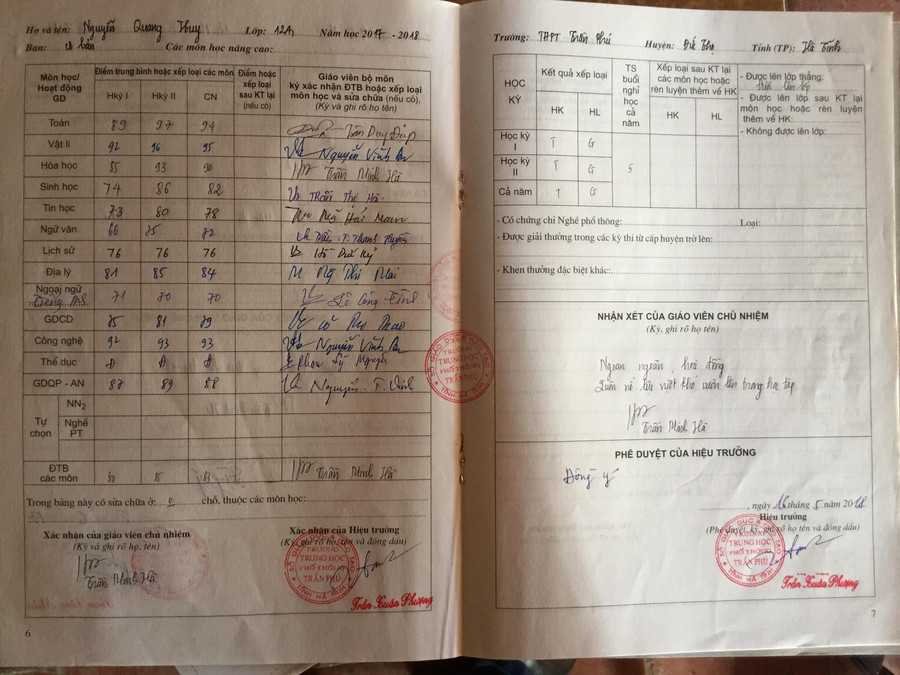 Họ và tên: Nguyễn Quang Huy Lớp: 12A1 Năm học 2017 - 2018
Ban: cơ bản Các môn học nâng cao:
Môn học/ Hoạt động GD | Điểm trung bình hoặc xếp loại các môn | Điểm hoặc xếp loại sau KT lại (nếu có) | Giáo viên bộ môn ký xác nhận ĐTB hoặc xếp loại môn học và sửa chữa (nếu có). (Ký và ghi rõ họ tên)
Hkỳ I Hkỳ II CN
Toán 89 97 94 Trần Duy Đáp
Vật lí 92 96 95 Nguyễn Vĩnh An
Hóa học 93 90 Trần Minh Hà
Sinh học 74 86 82 Trần Thị Hà
Tin học 73 80 78 Ngô Hải Nam
Ngữ văn 66 75 72 Trần T. Thanh Huyền
Lịch sử 76 76 76
Địa lý 81 85 84 Ng Thị Mai
Ngoại ngữ Tiếng 71 70 70 Lê Công
GDCD 75 81 79 Thao
Công nghệ 92 93 93 Nguyễn Vĩnh An
Thể dục Đ Đ Đ Phan Sỹ Nguyên
GDQP - AN 87 89 88 Nguyễn T. Vinh
Tự chọn
NN2
Nghề PT
ĐTB các môn 80 85 Trần Minh Hà
Trong bảng này có sửa chữa ở: 0 chỗ, thuộc các môn học:
Xác nhận của giáo viên chủ nhiệm
(Ký và ghi rõ họ, tên)
Trần Minh Hà
Xác nhận của Hiệu trưởng
(Ký, ghi rõ họ tên và đóng dấu)
SỞ GIÁO DỤC & ĐÀO TẠO
TRƯỜNG
TRUNG HỌC
PHỔ THÔNG
TRẦN PHÚ
TỈNH HÀ TĨNH
Trần Xuân Phượng
6
Trường: THPT Trần Phú Huyện: Đức Thọ Tỉnh (TP): Hà Tĩnh
HỌC KỲ | Kết quả xếp loại | TS buổi nghỉ học cả năm | Xếp loại sau KT lại các môn học hoặc rèn luyện thêm về HK
HK HL HK HL
- Được lên lớp thẳng:
- Được lên lớp sau KT lại môn học hoặc rèn luyện thêm về HK:
- Không được lên lớp:
Học kỳ I T G
Học kỳ II T G 5
Cả năm T G
- Có chứng chỉ Nghề phổ thông: Loại:
- Được giải thưởng trong các kỳ thi từ cấp huyện trở lên:
- Khen thưởng đặc biệt khác:
NHẬN XÉT CỦA GIÁO VIÊN CHỦ NHIỆM
(Ký, ghi rõ họ tên)
Ngoan ngoãn, hoà đồng
Luôn nỗ lực vượt khó vươn lên trong học tập
Trần Minh Hà
PHÊ DUYỆT CỦA HIỆU TRƯỞNG
Đồng ý
, ngày 16 tháng 5 năm 2018
Hiệu trưởng
(Phê duyệt, ký, ghi rõ họ tên và đóng dấu)
SỞ GIÁO DỤC & ĐÀO TẠO
TRƯỜNG
TRUNG HỌC
PHỔ THÔNG
TRẦN PHÚ
TỈNH HÀ TĨNH
Trần Xuân Phượng
7